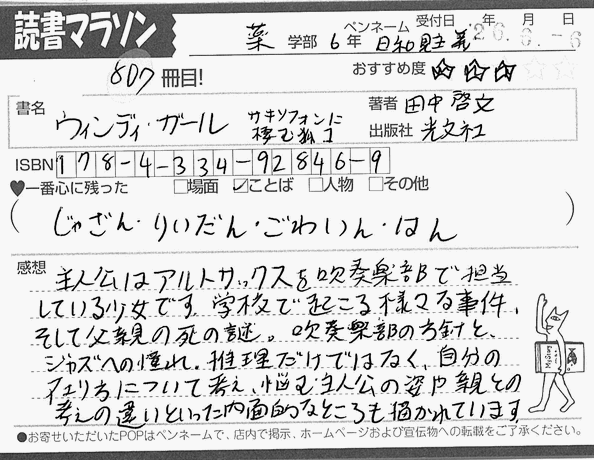 読書マラソン
薬 学部 6年 ペンネーム 日和見主義 受付日 年 月 日
26.6.-6
807 冊目! おすすめ度 ☆☆☆☆☆
書名 ウィンディ・ガール サキソフォンに棲む狐Ⅰ
著者 田中啓文
出版社 光文社
ISBN 178-4-334-92846-9
♥一番心に残った □場面 ☑ことば □人物 □その他
(じゃざん・りいだん・ごわいん・はん)
感想
主人公はアルトサックスを吹奏楽部で担当
している少女です。学校で起こる様々な事件、
そして父親の死の謎。吹奏楽部の方針と、
ジャズへの憧れ。推理だけではなく、自分の
在り方について考え、悩む主人公の姿や親との
考えの違いといった内面的なところも描かれています
●お寄せいただいたPOPはペンネームで、店内で掲示、ホームページおよび宣伝物への転載をご了承ください。